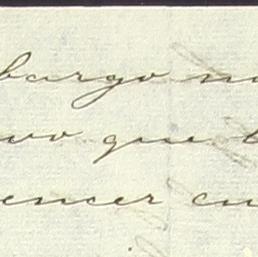 bargo no
vo que t
encer cu